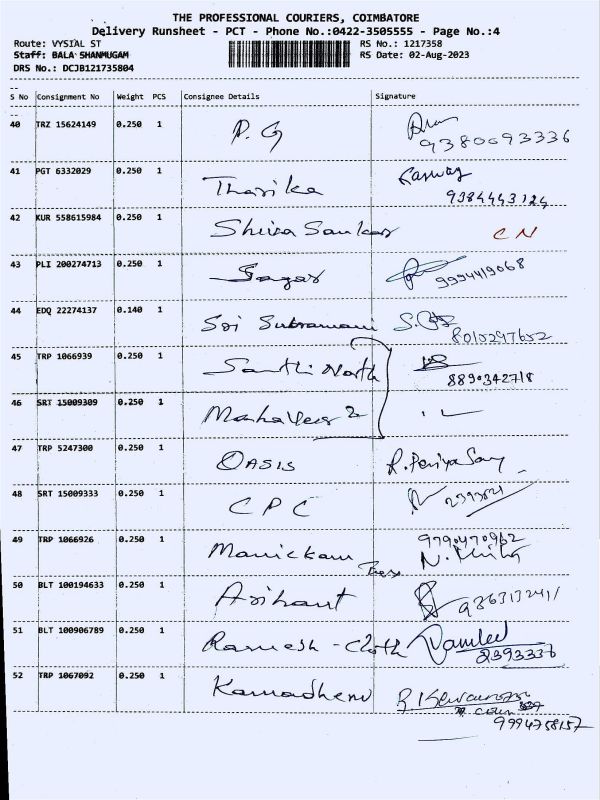 THE PROFESSIONAL COURIERS, COIMBATORE
Delivery Runsheet - PCT - Phone No.:0422-3505555 - Page No.:4
Route: VYSIAL ST RS No.: 1217358
Staff: BALA SHANMUGAM RS Date: 02-Aug-2023
DRS No.: DCJB121735804
S No Consignment No Weight PCS Consignee Details Signature
40 TRZ 15624149 0.250 1 P. G
9380093336
41 PGT 6332029 0.250 1 Tharika
9384443124
42 KUR 558615984 0.250 1 Shiva Sankar C N
43 PLI 200274713 0.250 1 Sagar 9994419068
44 EDQ 22274137 0.140 1 Sri Subramani
8015297652
45 TRP 1066939 0.250 1 Santhi North
8890342718
46 SRT 15009309 0.250 1 Mahaveer 2
47 TRP 5247300 0.250 1 OASIS R. Periya Samy
48 SRT 15009333 0.250 1 C P C 2393821
49 TRP 1066926 0.250 1 Manickam 9790470962
50 BLT 100194633 0.250 1 Arihant 9363132411
51 BLT 100906789 0.250 1 Ramesh - Cloth
2393336
52 TRP 1067092 0.250 1 Kamadhenu
9994758157